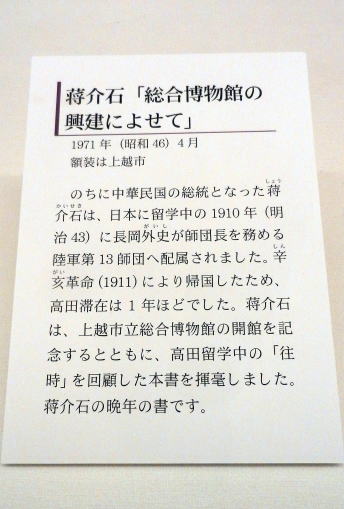 蒋介石「総合博物館の
興建によせて」
1971年（昭和46）4月
額装は上越市
のちに中華民国の総統となった蒋
介石は、日本に留学中の1910年（明
治43）に長岡外史が師団長を務める
陸軍第13師団へ配属されました。辛
亥革命（1911）により帰国したため、
高田滞在は1年ほどでした。蒋介石
は、上越市立総合博物館の開館を記
念するとともに、高田留学中の「往
時」を回顧した本書を揮毫しました。
蒋介石の晩年の書です。
しょう
かいせき
がいし
しん
がい